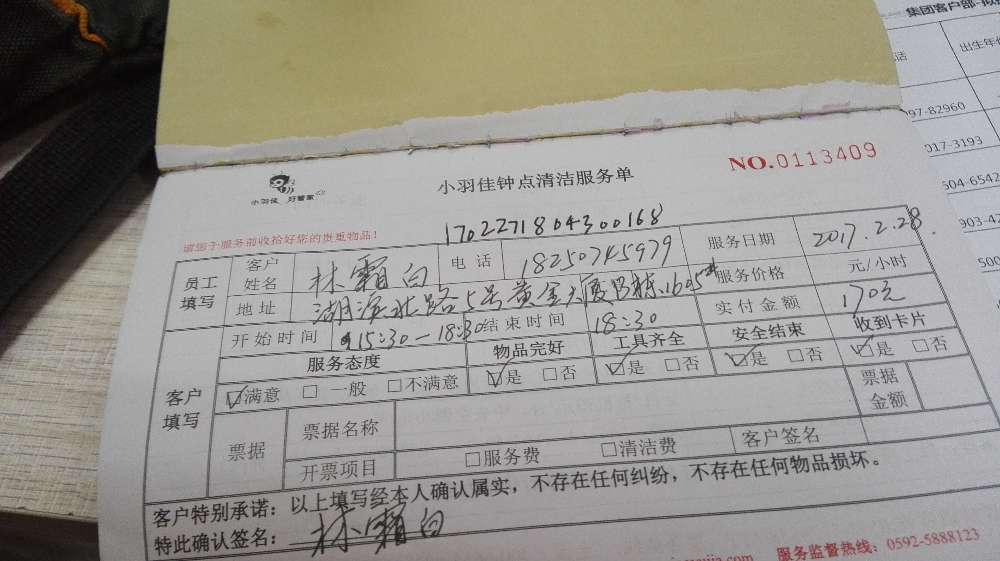 集团客户部-拟
话 出生年
97-82960
017-3193
504-6542
903-42
500
小羽佳 好管家
小羽佳钟点清洁服务单
NO.0113409
请您于服务前收拾好您的贵重物品!
1702271804300168
员工填写 客户姓名 林霜白 电话 18250745979 服务日期 2017.2.28.
地址 湖滨北路5号黄金大厦B栋1605 服务价格 元/小时
开始时间 15:30-18:30 结束时间 18:30 实付金额 170元
客户填写 服务态度 物品完好 工具齐全 安全结束 收到卡片
☑满意 □一般 □不满意 ☑是 □否 ☑是 □否 ☑是 □否 ☑是 □否
票据 票据名称 票据金额
开票项目 □服务费 □清洁费 客户签名
客户特别承诺:以上填写经本人确认属实,不存在任何纠纷,不存在任何物品损坏。
特此确认签名: 林霜白
服务监督热线:0592-5888123